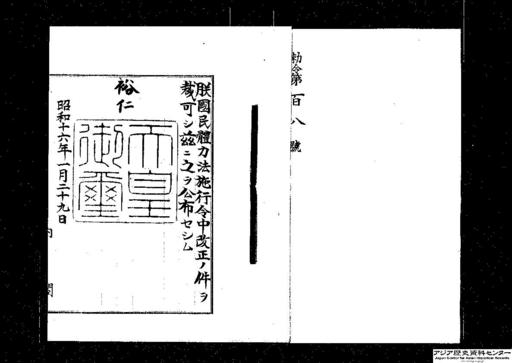 勅令第百八號
朕國民體力法施行令中改正ノ件ヲ
裁可シ茲ニ之ヲ公布セシム
裕仁
天皇
御璽
昭和十六年一月二十九日
内閣
アジア歴史資料センター
Japan Center for Asian Historical Records